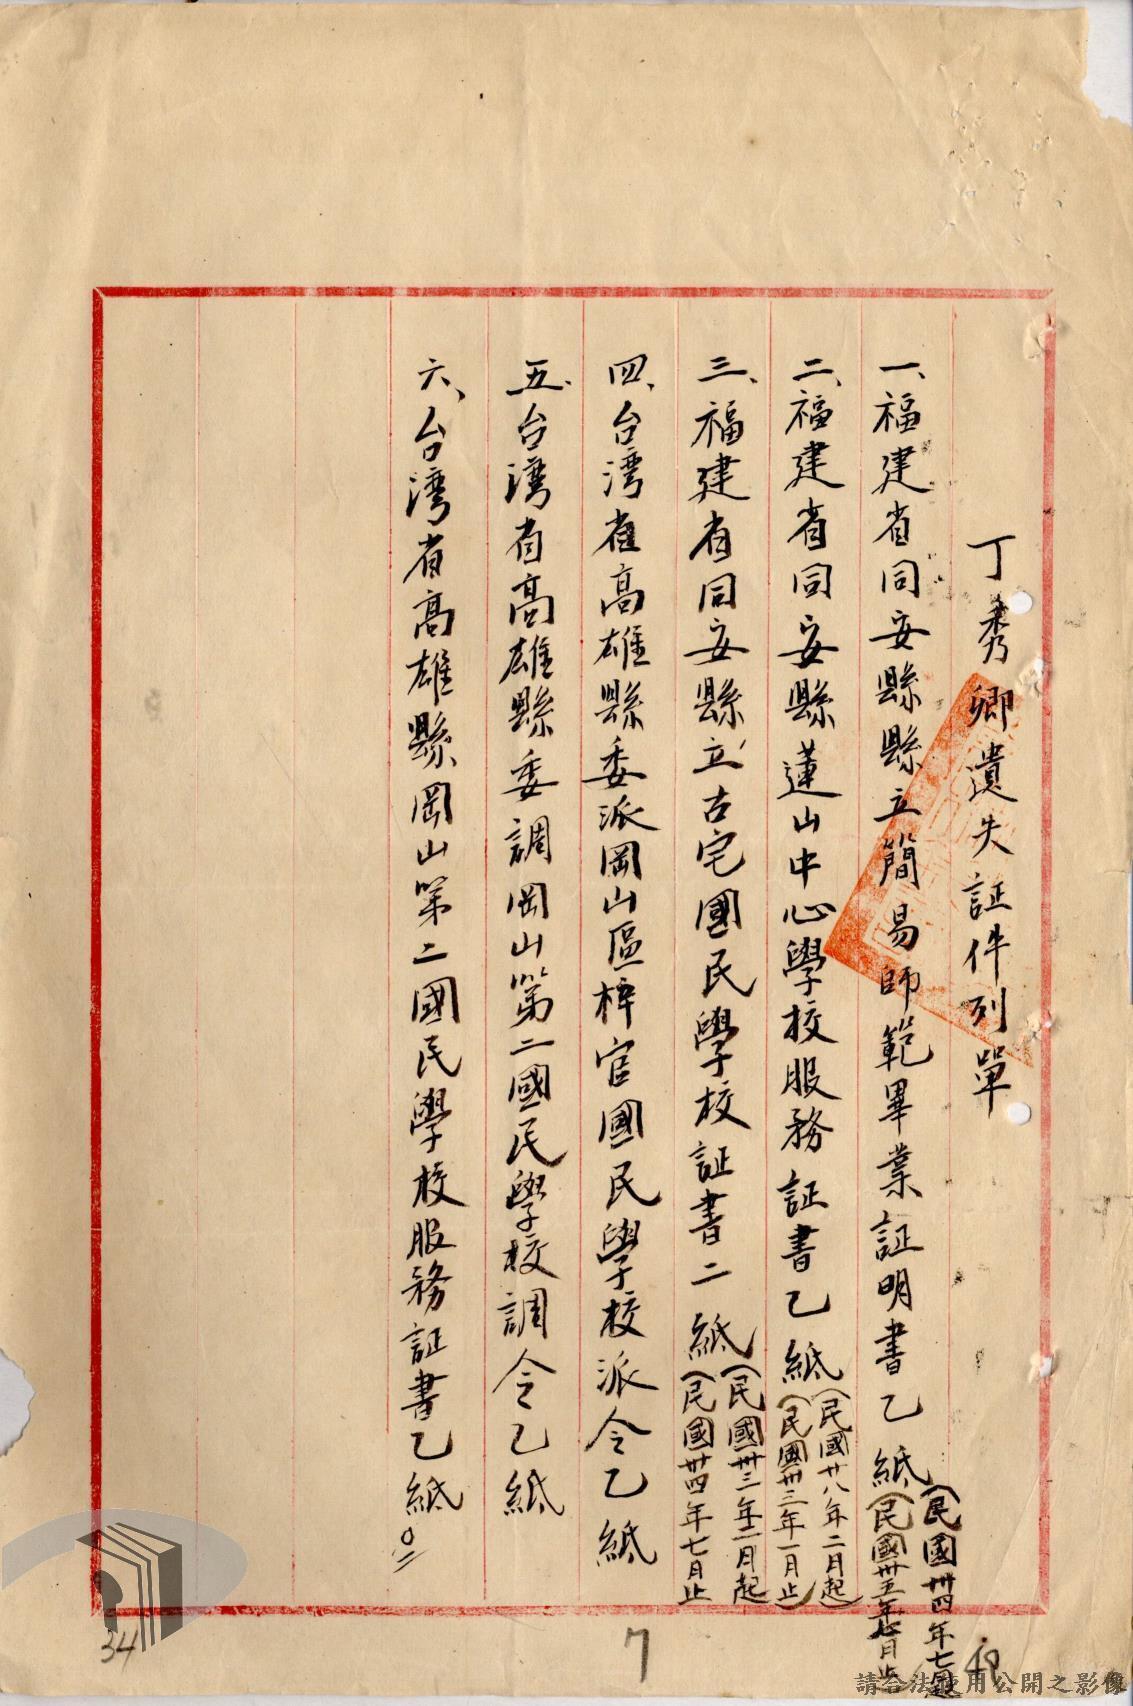 丁秀卿遺失証件列單
一、福建省同安縣縣立簡易師範畢業証明書乙紙(民國卅四年七月起
(民國卅五年七月止
二、福建省同安縣蓮山中心學校服務証書乙紙(民國廿八年二月起)
(民國卅三年一月止)
三、福建省同安縣立古宅國民學校証書二紙(民國卅三年二月起
(民國卅四年七月止
四、台湾省高雄縣委派岡山區梓官國民學校派令乙紙
五、台湾省高雄縣委調岡山第二國民學校調令乙紙
六、台湾省高雄縣岡山第二國民學校服務証書乙紙
34
7
請合法使用公開之影像